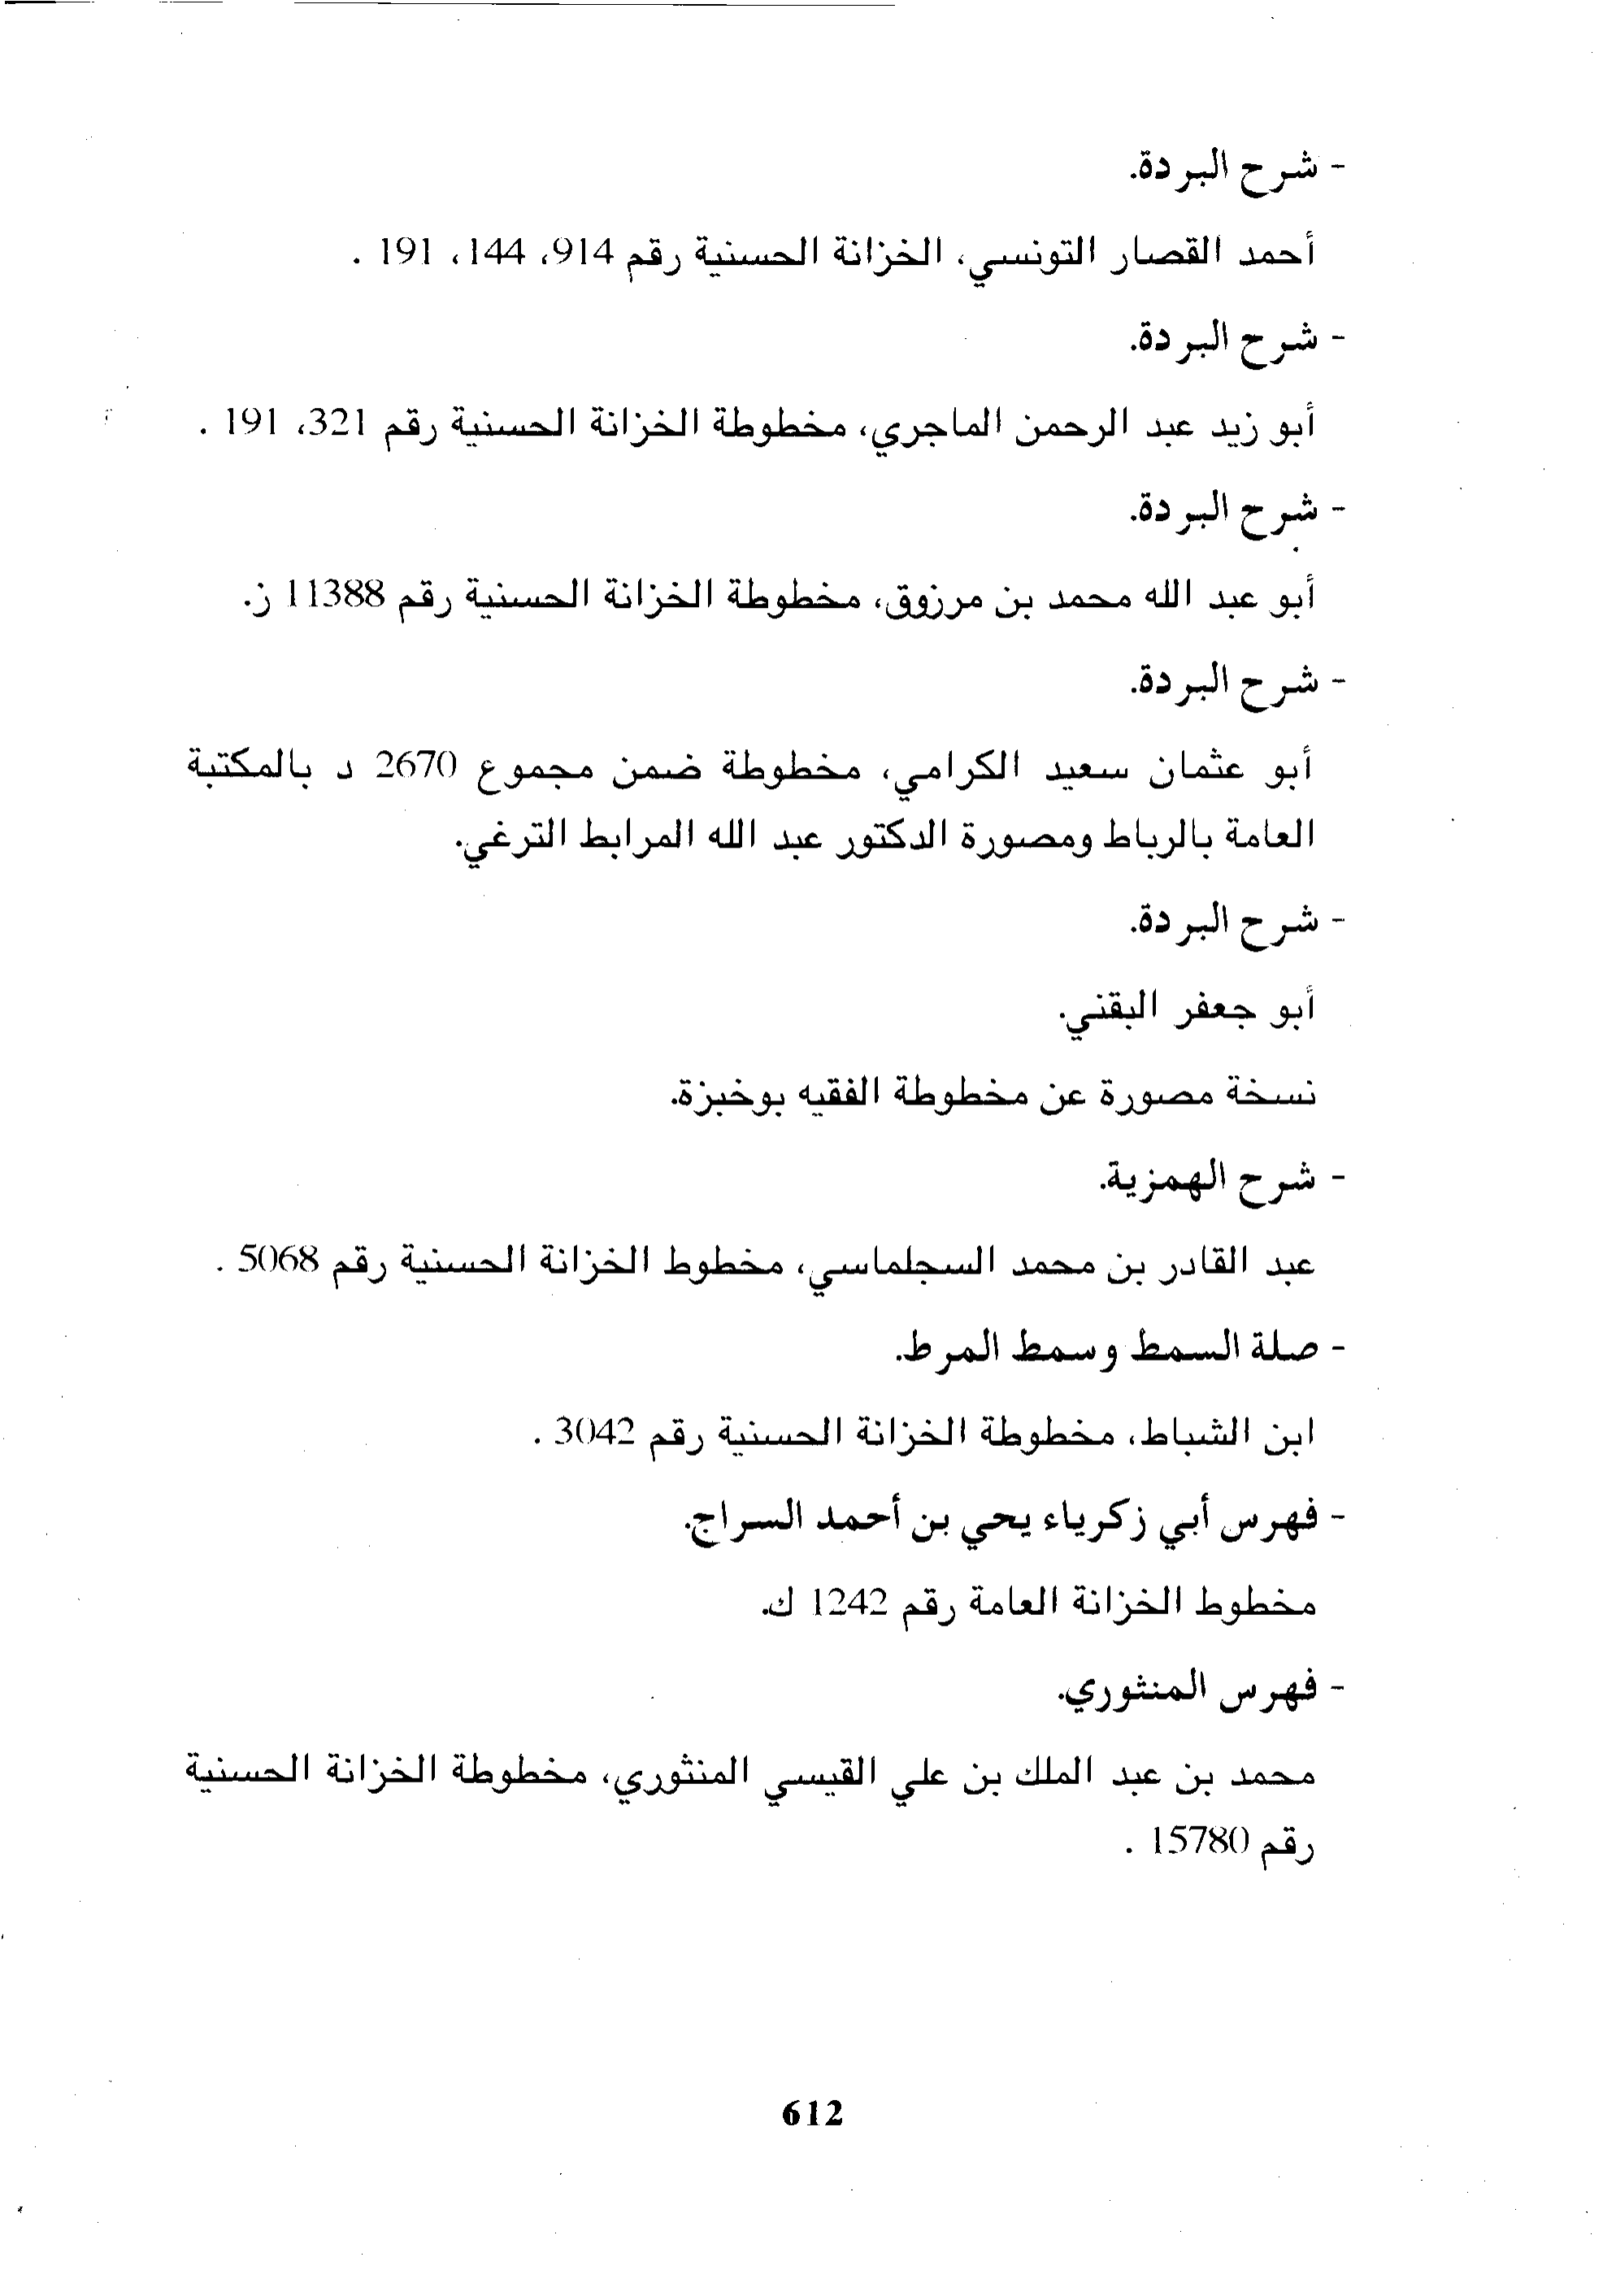 - شرح البردة.
أحمد القصار التونسي، الخزانة الحسنية رقم 914، 144، 191 .
- شرح البردة.
أبو زيد عبد الرحمن الماجري، مخطوطة الخزانة الحسنية رقم 321، 191 .
- شرح البردة.
أبو عبد الله محمد بن مرزوق، مخطوطة الخزانة الحسنية رقم 11388 ز.
- شرح البردة.
أبو عثمان سعيد الكرامي، مخطوطة ضمن مجموع 2670 د بالمكتبة
العامة بالرباط ومصورة الدكتور عبد الله المرابط الترغي.
- شرح البردة.
أبو جعفر البقني.
نسخة مصورة عن مخطوطة الفقيه بوخبزة.
- شرح الهمزية.
عبد القادر بن محمد السجلماسي، مخطوط الخزانة الحسنية رقم 5068 .
- صلة السمط وسمط المرط.
ابن الشباط، مخطوطة الخزانة الحسنية رقم 3042 .
- فهرس أبي زكرياء يحي بن أحمد السراج.
مخطوط الخزانة العامة رقم 1242 ك.
- فهرس المنثوري.
محمد بن عبد الملك بن علي القيسي المنثوري، مخطوطة الخزانة الحسنية
رقم 15780 .
612